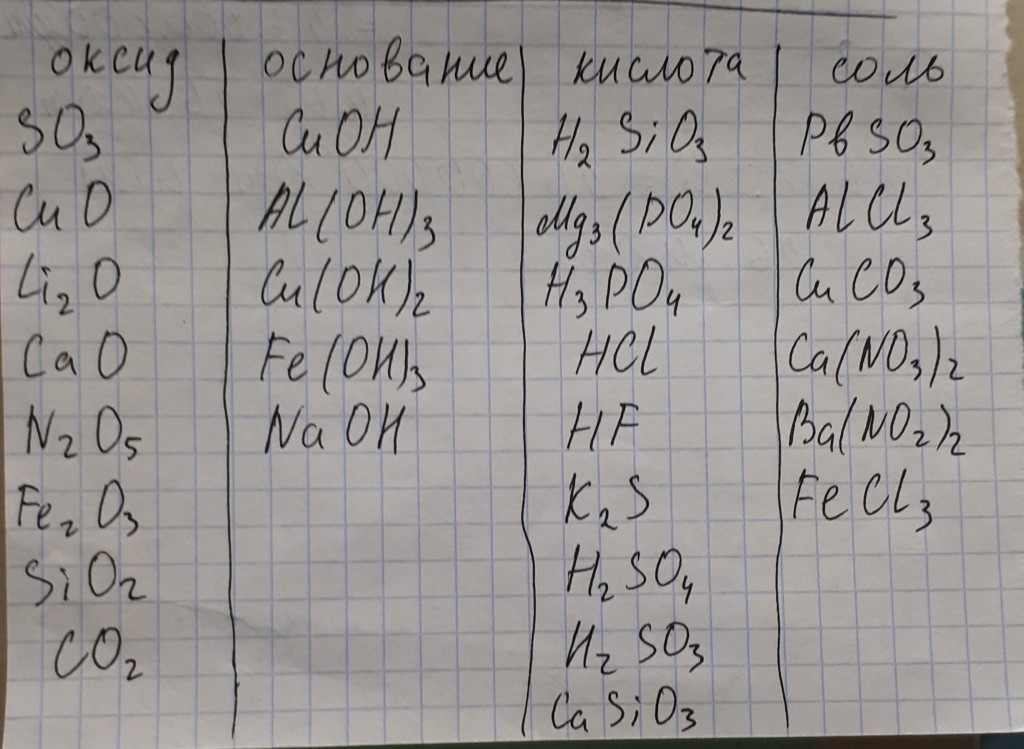 оксид основание кислота соль
SO3 CuOH H2 SiO3 PbSO3
CuO Al(OH)3 Mg3(PO4)2 AlCl3
Li2O Cu(OH)2 H3PO4 CuCO3
CaO Fe(OH)3 HCl Ca(NO3)2
N2O5 NaOH HF Ba(NO2)2
Fe2O3 K2S FeCl3
SiO2 H2SO4
CO2 H2SO3
CaSiO3